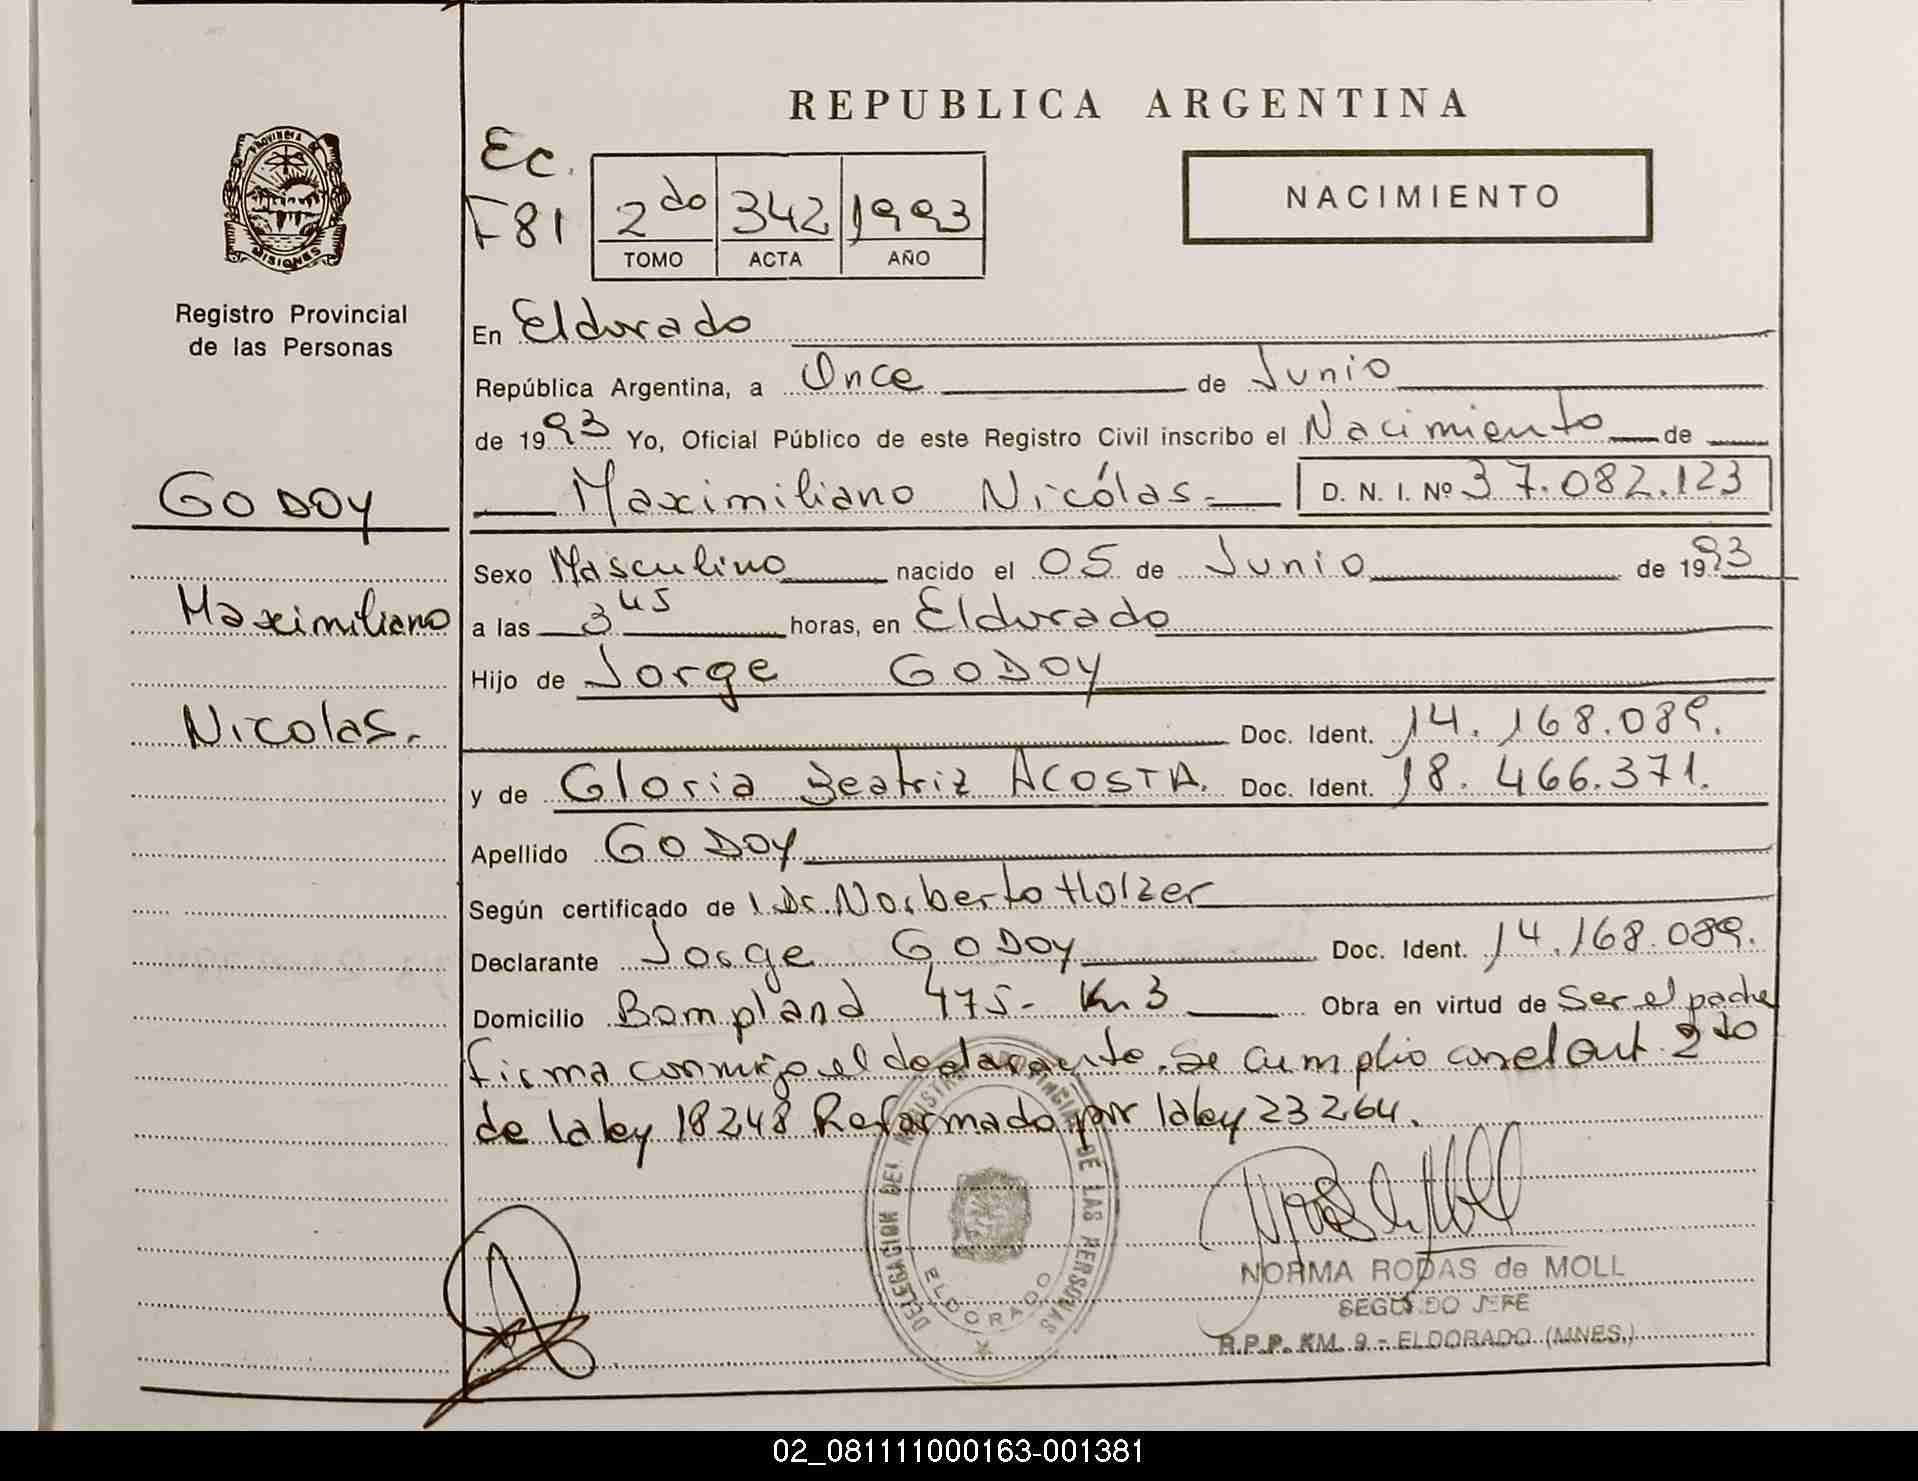 REPUBLICA ARGENTINA
PROVINCIA DE
MISIONES
Registro Provincial
de las Personas
Ec.
F81
2do 342 1993
TOMO ACTA AÑO
NACIMIENTO
En Eldorado
República Argentina, a Once de Junio
de 1993 Yo, Oficial Público de este Registro Civil inscribo el Nacimiento de
GODOY
Maximiliano Nicólas- D. N. I. Nº 37.082.123
Sexo Masculino nacido el 05 de Junio de 1993
Maximiliano
a las 3 45 horas, en Eldorado
Hijo de Jorge GODOY
Nicolas.
Doc. Ident. 14.168.089.
y de Gloria Beatriz ACOSTA. Doc. Ident. 18.466.371.
Apellido GODOY
Según certificado de l Dr. Norberto Holzer
Declarante Jorge GODOY Doc. Ident. 14.168.089.
Domicilio Bompland 475- Km 3 Obra en virtud de Ser el padre
firma conmigo el declarante. Se cumplio con el art. 2do
de la ley 18248 Reformado por la ley 23264.
DELEGACION DEL REGISTRO PROVINCIAL DE LAS PERSONAS
ELDORADO
NORMA RODAS de MOLL
SEGUNDO JEFE
R.P.P. KM. 9 - ELDORADO (MNES.)
02_081111000163-001381